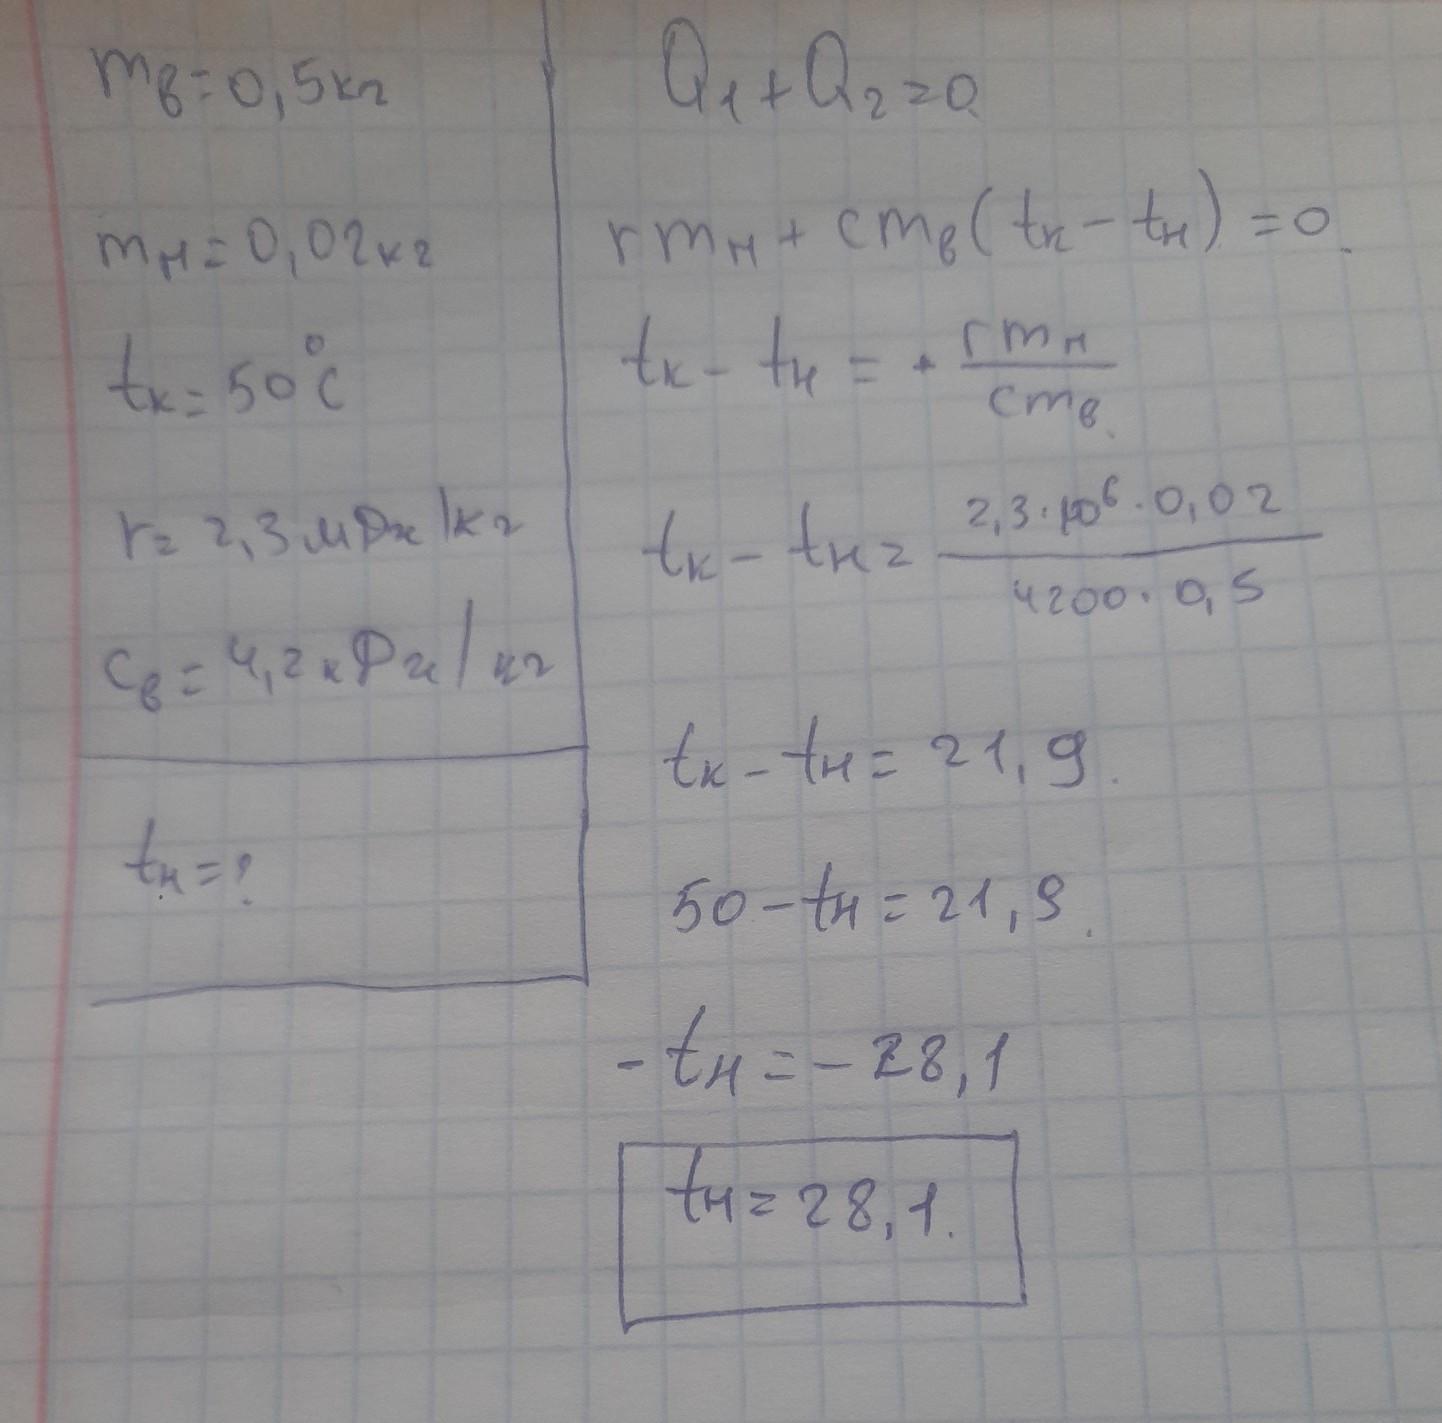 mв=0,5кг
mн=0,02кг
tк=50°C
r=2,3мДж/кг
cв=4,2кДж/кг
tн=?
Q1+Q2=0
rmн+cmв(tк-tн)=0.
tк-tн=+ rmн/cmв.
tк-tн= 2,3·10⁶·0,02/4200·0,5
tк-tн=21,9.
50-tн=21,9.
-tн=-28,1
tн=28,1.